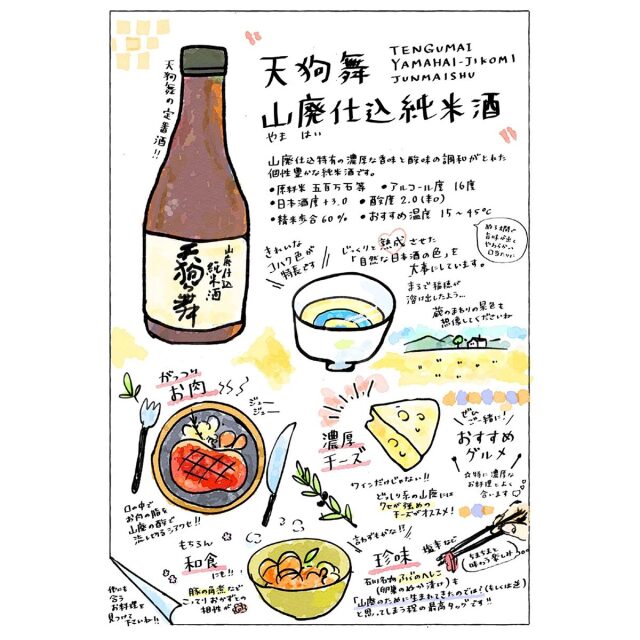 天狗舞の定番酒!!
天狗舞
TENGUMAI
YAMAHAI-JIKOMI
JUNMAISHU
山廃仕込純米酒
やま はい
山廃仕込特有の濃厚な香味と酸味の調和がとれた
個性豊かな純米酒です。
•原料米 五百万石等 •アルコール度 16度
•日本酒度 +3.0 •酸度 2.0(和)
•精米歩合 60% •おすすめ温度 15〜45℃
山廃仕込
純米酒
天狗舞
きれいな
コハク色が
特長です
じっくりと熟成させた
「自然な日本酒の色」を
大事にしています。
まるで稲穂が
溶け出したよう…
蔵のまわりの景色も
想像してくださいね
がっつり
お肉
ジュー
ジュー
口の中で
お肉の脂を
山廃の酸で
流し切るシアワセ!!
濃厚
チーズ
ワインだけじゃない!!
どっしり系の山廃には
クセが強めの
チーズがオススメ!
ぜひ
ご一緒に!
おすすめ
グルメ
☆特に濃厚な
お料理とよく
合います♡
もちろん
和食
にも!!
豚の角煮など
こってりおかずとの
相性が
言わずもがな!!
珍味
塩辛など
ちまちまと
味わう楽しみ
石川名物 ふぐのへしこ
(卵巣のぬか漬け)も
「山廃のために生まれてきたのでは?(もしくは逆)
と思ってしまう程の最高タッグです!!
他にも
合う
お料理を
見つけて
下さいね!!